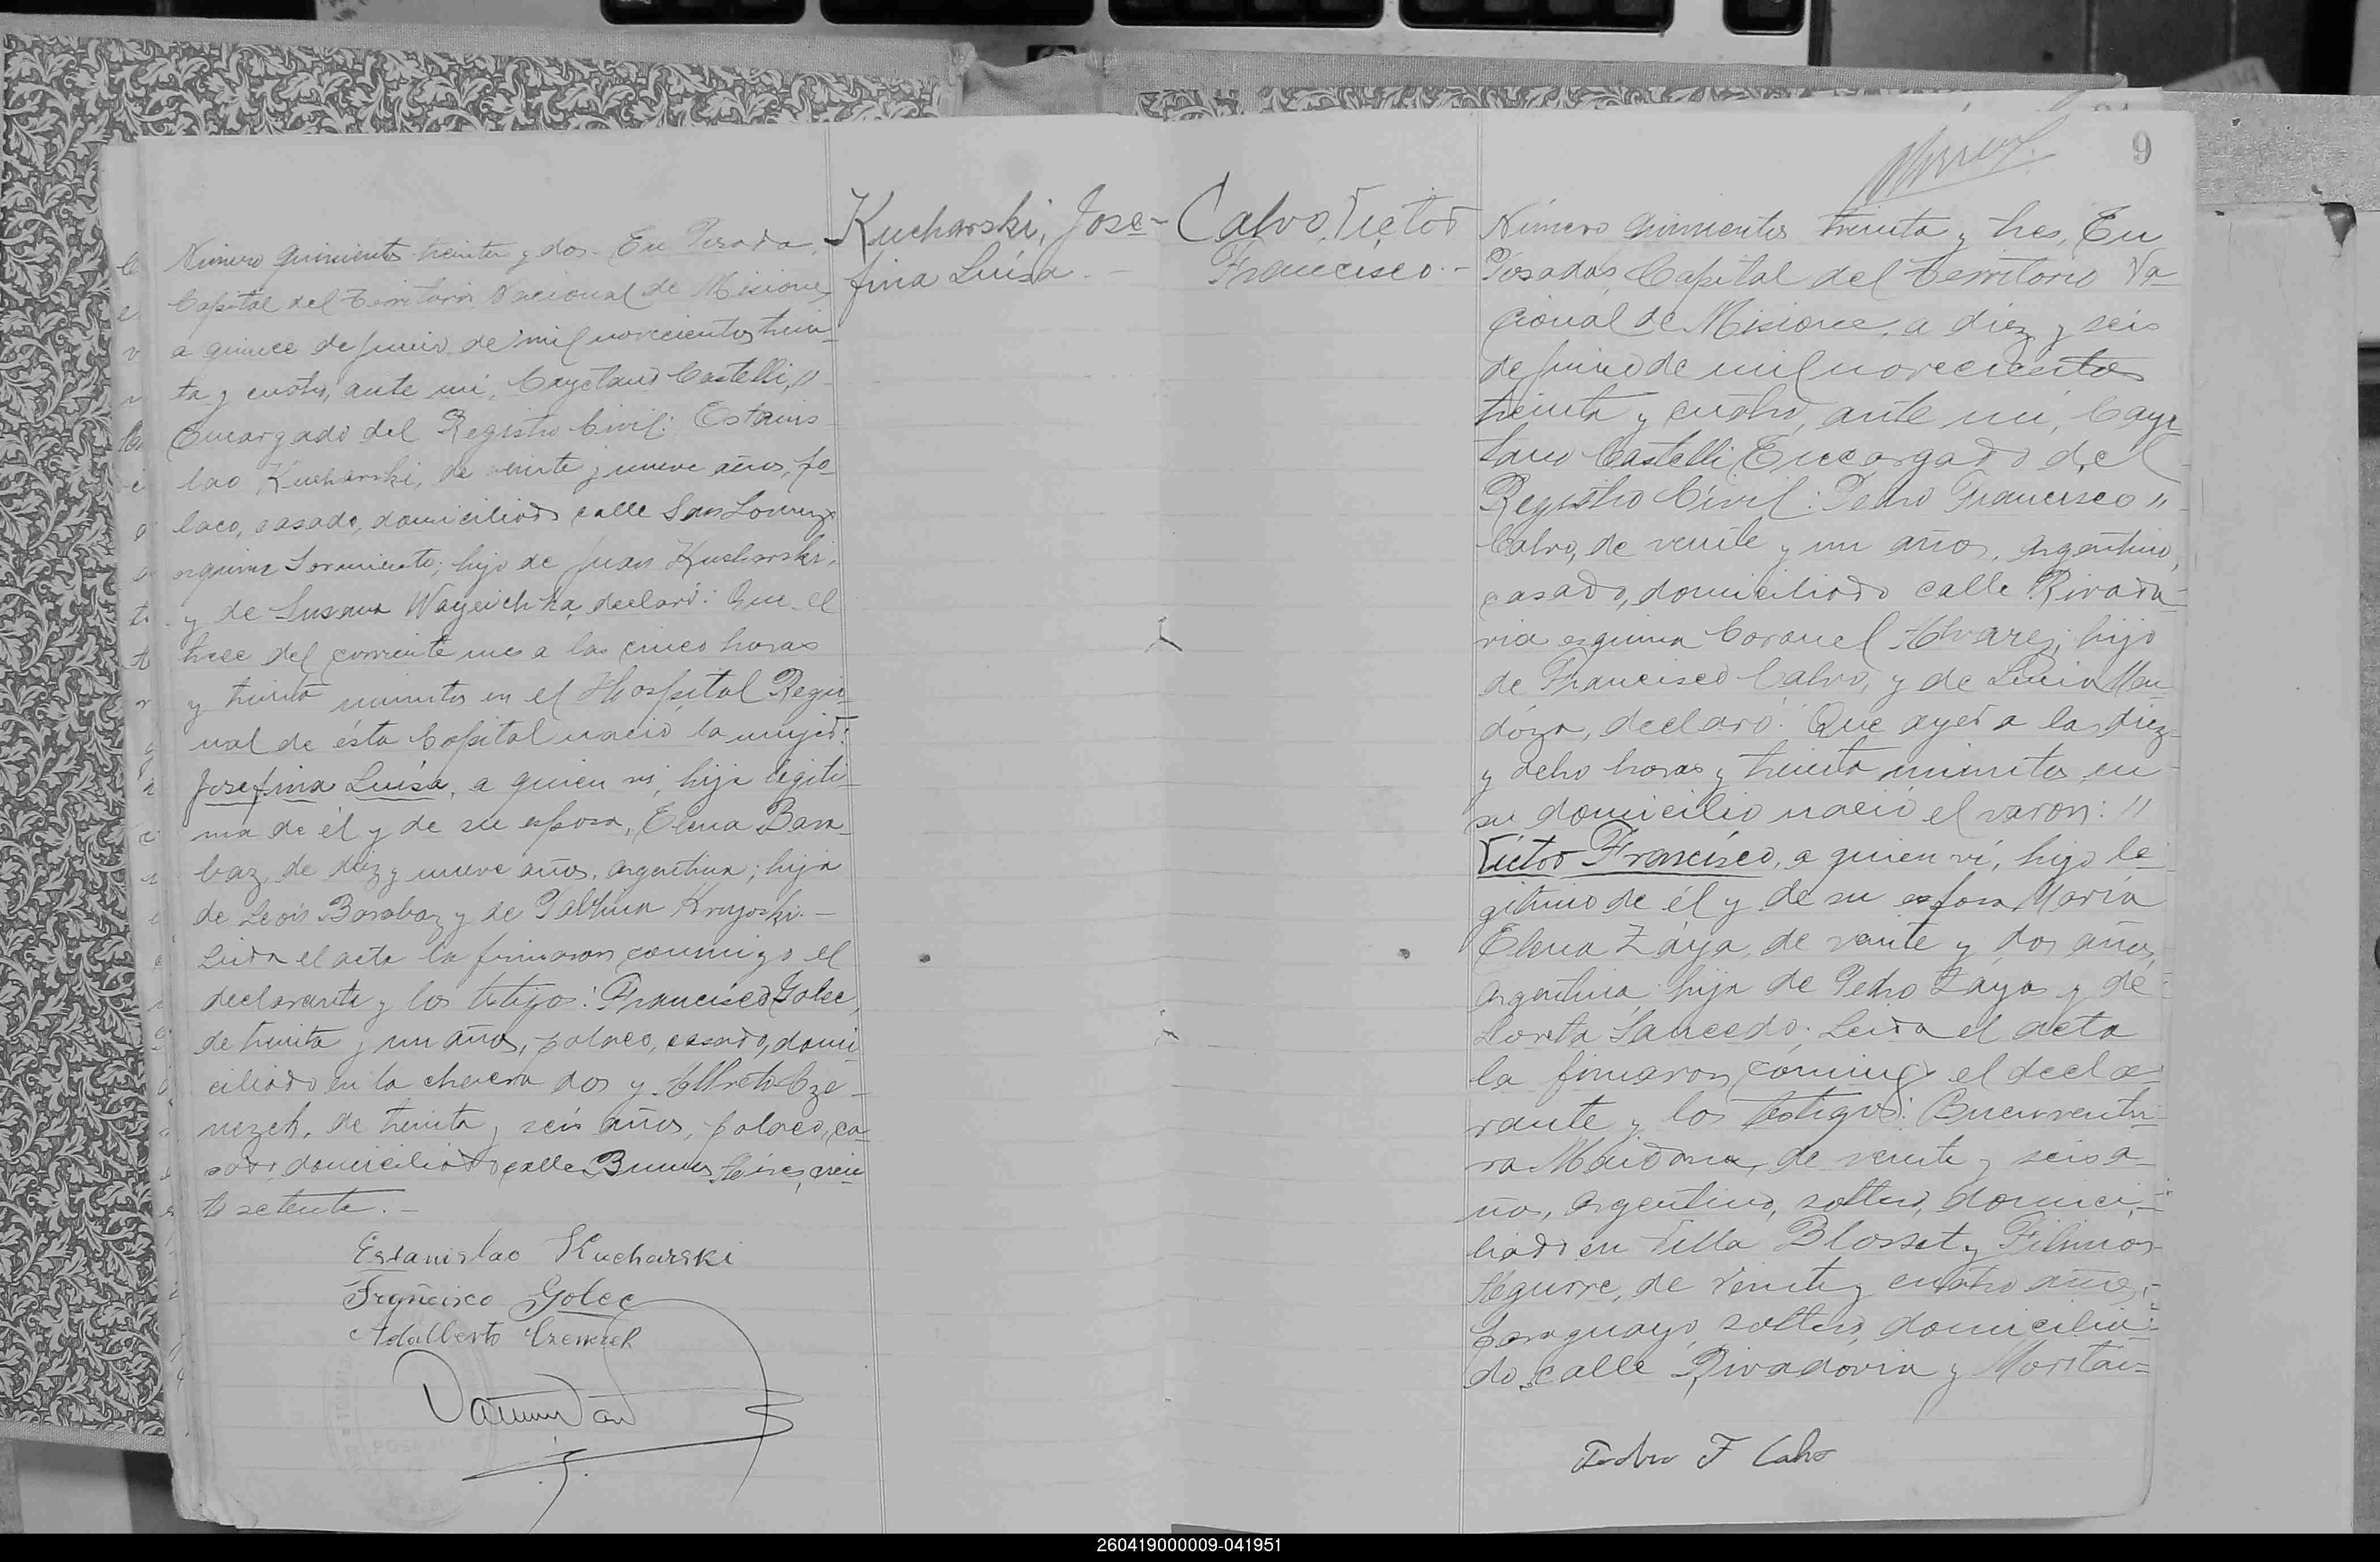 Kucharski, Jose-
fina Luisa. -
Número quinientos treinta y dos. En Posadas,
Capital del Territorio Nacional de Misiones,
a quince de junio de mil novecientos trein-
ta y cuatro, ante mi, Cayetano Castelli, "
Encargado del Registro Civil: Estanis-
lao Kucharski, de veinte y nueve años, po-
laco, casado, domiciliado calle San Lorenzo
esquina Sarmiento; hijo de Juan Kucharski,
y de Susana declaró: Que el
trece del corriente mes a las cinco horas
y treinta minutos en el Hospital Regio-
nal de ésta Capital nació la mujer:
Josefina Luisa, a quien vi, hija legiti-
ma de él y de su esposa, Elena Bara-
baz, de diez y nueve años, argentina; hija
de León Barabaz y de
Leida el acta la firmaron conmigo el
declarante y los testigos: Francisco Golec,
de treinta y un años, polaco, casado, domi-
ciliado en la chacra dos y
de treinta y seis años, polaco, ca-
sado, domiciliado calle Buenos Aires, cien-
to setenta. -
Estanislao Kucharski
Francisco Golec
Adalberto
9
Calvo, Victor
Francisco. -
Número quinientos treinta y tres, En
Posadas, Capital del Territorio Na-
cional de Misiones, a diez y seis
de junio de mil novecientos
treinta y cuatro, ante mi, Caye-
tano Castelli Encargado del
Registro Civil: Pedro Francisco "
Calvo, de veinte y un años, argentino,
casado, domiciliado calle Rivada-
via esquina Coronel Alvarez; hijo
de Francisco Calvo, y de Lucia Men-
doza, declaró: Que ayer a las diez
y ocho horas y treinta minutos en
su domicilio nació el varon: "
Victor Francisco, a quien vi, hijo le-
gitimo de él y de su esposa Maria
Elena Zaya, de veinte y dos años,
argentina, hija de Pedro Zaya y de
Loreta Saucedo. Leida el acta
la firmaron conmigo el decla-
rante y los testigos: Buenaventu-
ra Maidana, de veinte y seis a-
ños, argentino, soltero, domici-
liado en Villa Blosset y
Aguirre, de veinte y cuatro años,
paraguayo, soltero, domicilia-
do calle Rivadavia y
Pedro F Calvo
260419000009-041951